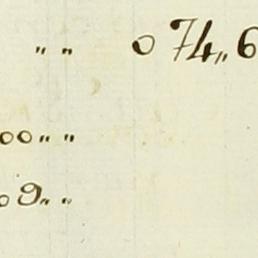 „ „ 0 74„6
00„ „
09„ „